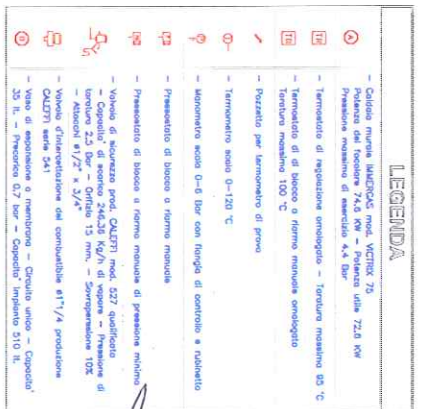 LEGENDA
A
- Caldaia murale IMMERGAS mod. VICTRIX 75
Potenza del focolare 74,6 KW - Potenza utile 72,6 KW
Pressione massima di esercizio 4,4 Bar
TR
- Termostato di regolazione omologato - Taratura massima 95 °C
- Termostato di di blocco a riarmo manuale omologato
Taratura massima 100 °C
- Pozzetto per termometro di prova
- Termometro scala 0-120 °C
- Manometro scala 0-6 Bar con flangia di controllo e rubinetto
- Pressostato di blocco a riarmo manuale
- Pressostato di blocco a riarmo manuale di pressione minima
- Valvola di sicurezza prod. CALEFFI mod. 527 qualificata
- Capacita' di scarico 246,36 Kg/h di vapore - Pressione di
taratura 2,5 Bar - Orifizio 15 mm. - Sovrapressione 10%
- Attacchi ø1/2" x 3/4"
- Valvola d'intercettazione del combustibile ø1"1/4 produzione
CALEFFI serie 541
- Vaso di espansione a membrana - Circuito unico - Capacita'
35 lt. - Precarica 0,7 bar - Capacita' impianto 510 lt.